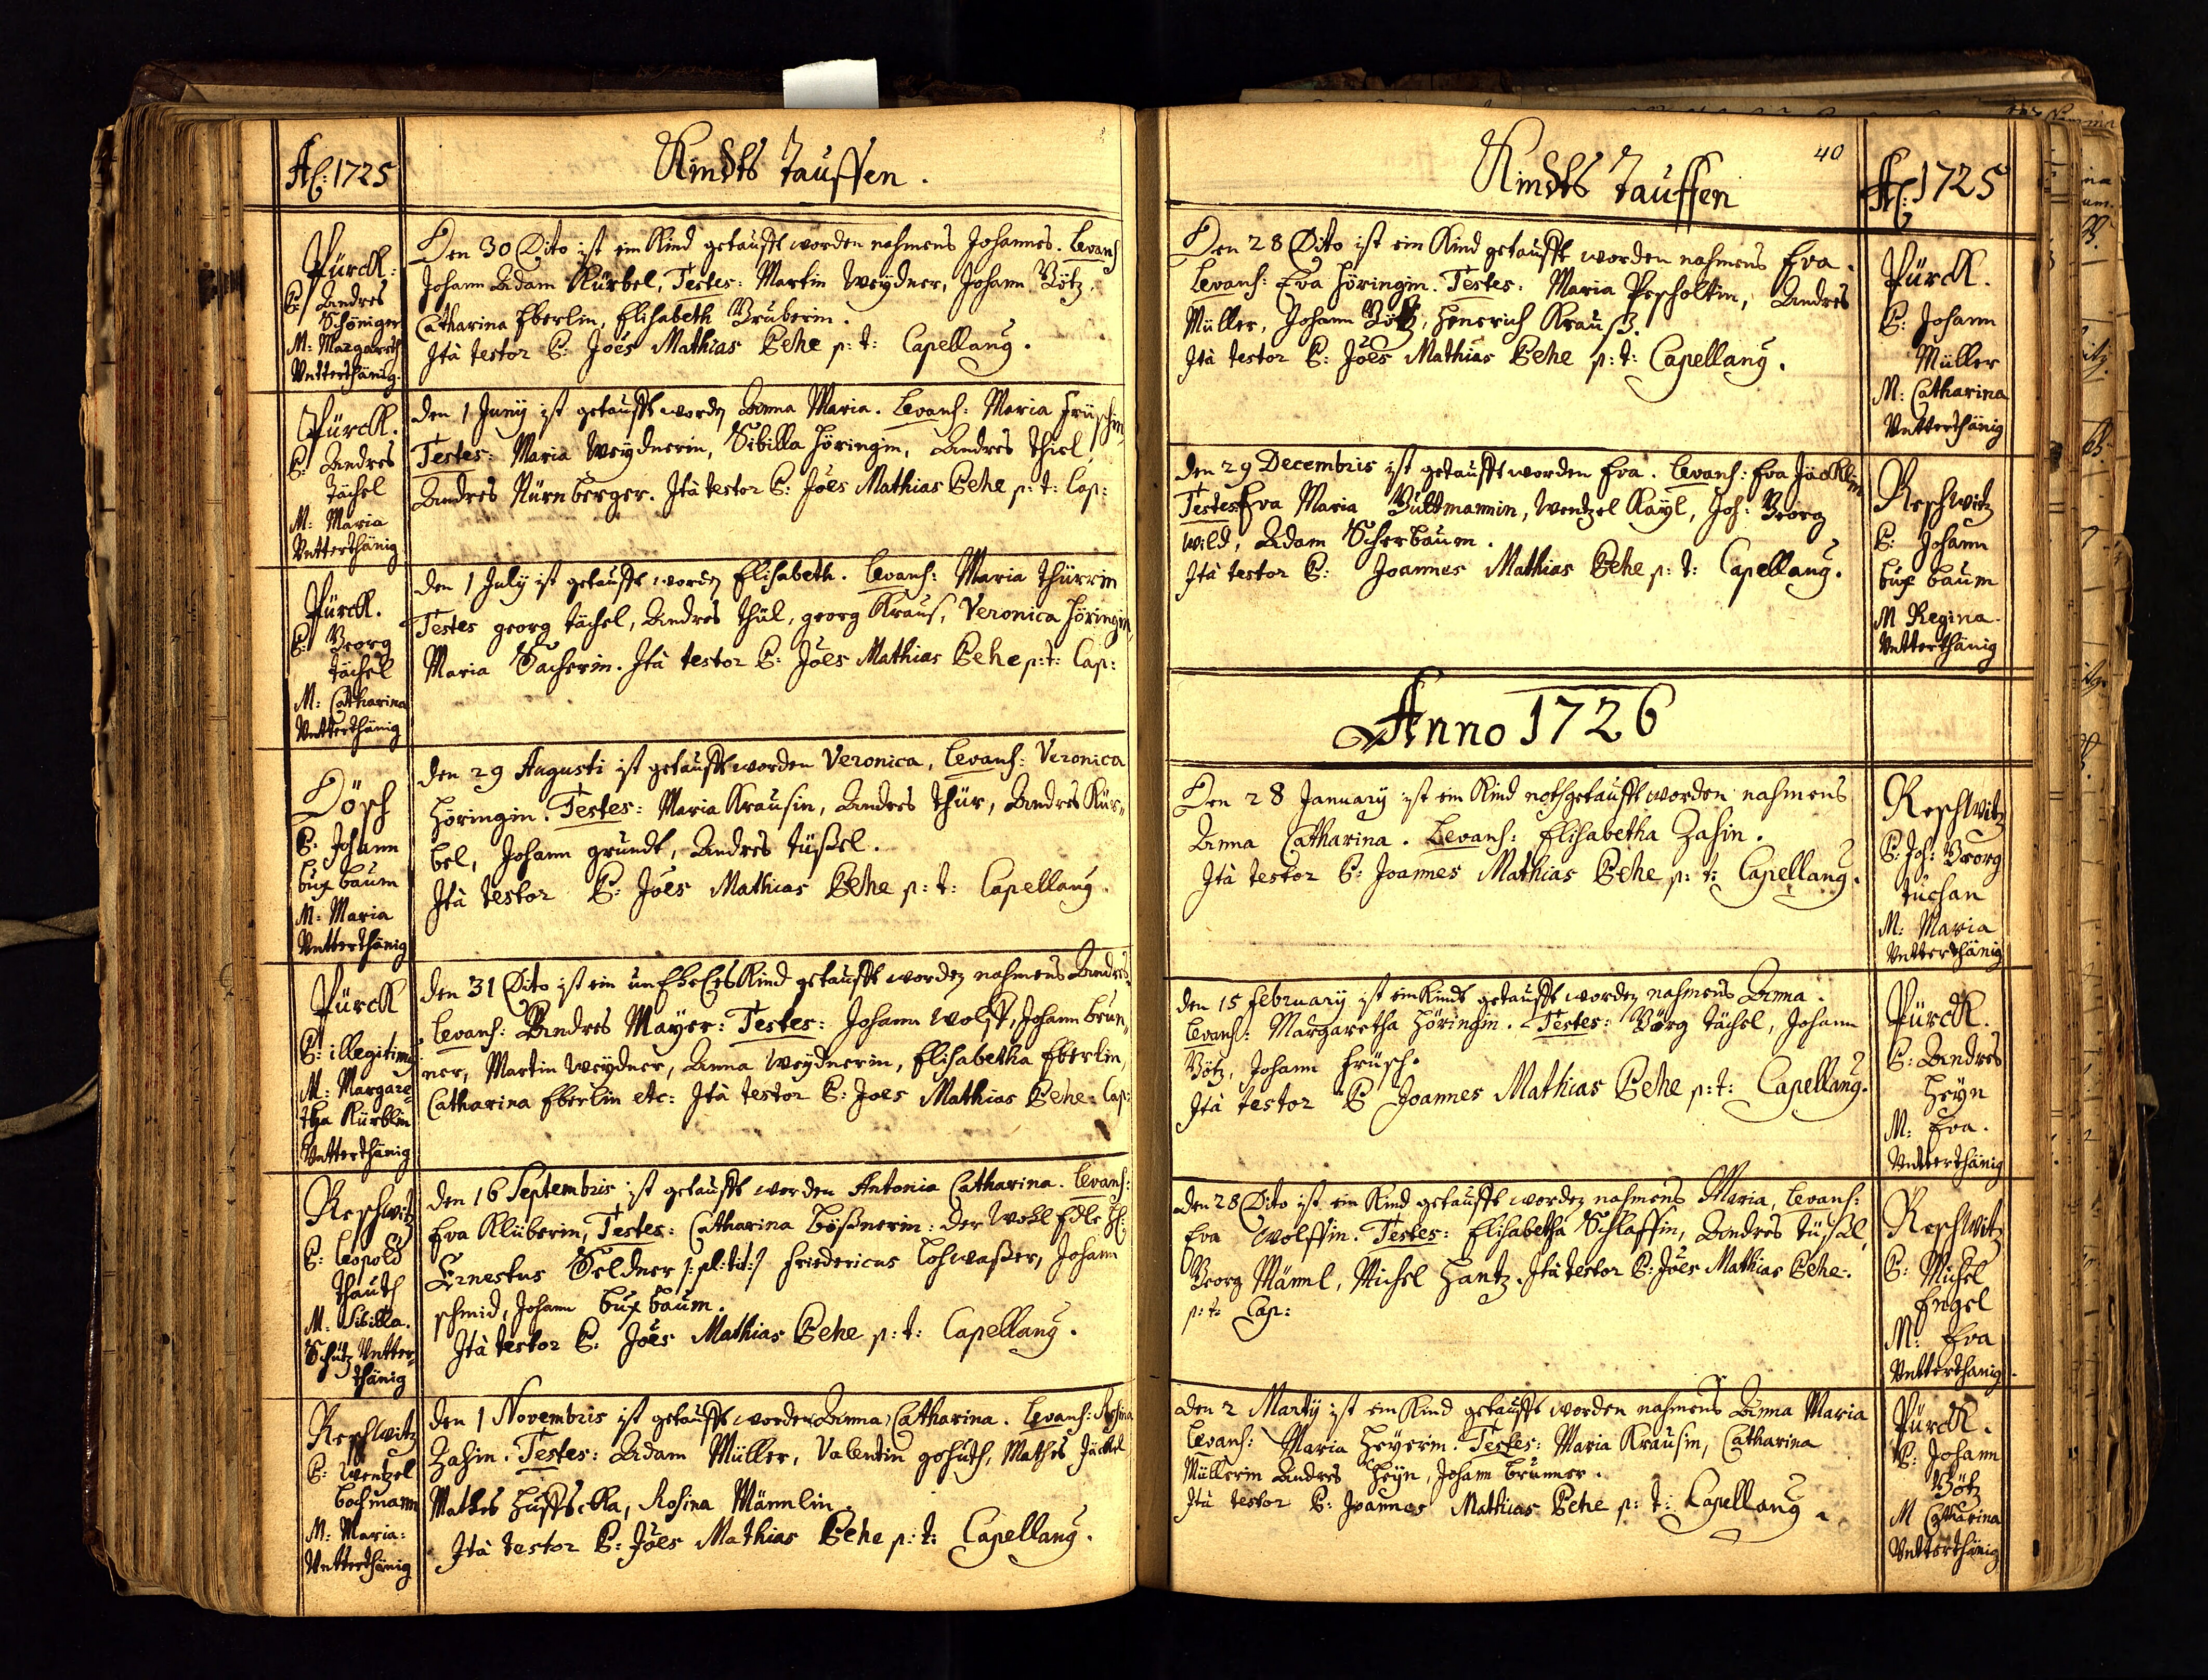 Aō: 1725
Kindts Tauffen.
Pürck:
P: Andres
Schöniger
M: Margareth
Vntterthänig.
Den 30 Dito ist ein Kind getaufft worden nahmens Johannes. Levans
Johann Adam Kürbel, Testes: Martin Weydner, Johann Götz,
Catharina Eberlin, Elisabeth Gruberin.
Ità testor P: Joēs Mathias Behe p: t: Capellang.
Pürck.
P: Andres
Tächel
M: Maria
Vntterthänig
den 1 Juny ist getaufft worden Anna Maria. Levans: Maria Früschin
Testes: Maria Weydnerin, Sibilla Höringin, Andres Thiel
Andres Nürnberger. Ità testor P: Joēs Mathias Behe p: t: Cap:
Pürck.
P: Georg
Tächel
M: Catharina
Vntterthänig
den 1 July ist getaufft worden Elisabeth. Levans: Maria Thürrin
Testes georg Tächel, Andres Thül, georg Kraus, Veronica Höringin,
Maria Sacherin. Ità testor P: Joēs Mathias Behe p: t: Cap:
Dösch
P: Johann
bux baum
M: Maria
Vntterthänig
den 29 Augusti ist getaufft worden Veronica, Levans: Veronica
Höringin. Testes: Maria Krausin, Andres Thür, Andres Kür„
bel, Johann grundt, Andres tüßel.
Ità testor P: Joēs Mathias Behe p: t: Capellang.
Pürck
P: illegitimg
M: Margare„
tha Kürblin
Vntterthänig
den 31 Dito ist ein unEheles Kind getaufft worden nahmens Andres
Levans: Andres Mayer: Testes: Johann Wolff, Johann brun„
ner, Martin Weydner, Anna Weydnerin, Elisabetha Eberlin,
Catharina Eberlin etc: Ità testor P: Joes Mathias Behe. Cap:
Reschwitz
P: Leopold
Thauth
M: Sibilla.
Schutz Vntter„
thänig
den 16 Septembris ist getaufft worden Antonia Catharina. Levans:
Eva Klüberin, Testes: Catharina Lößnerin: der Wohl Edle H:
Ernestus Seldner /: pl: tit: / Friedericus Loswaßer, Johann
schmid, Johann bux baum.
Ità testor P: Joēs Mathias Behe p: t: Capellang.
Reschwitz
P: Wentzel
Bachmann
M: Maria:
Vntterthänig
den 1 Novembris ist getaufft worden Anna Catharina. Levans: Rosina
Zahin. Testes: Adam Müller, Valentin gohuth, Mathes Jäckel
Mathes Huffschka, Rosina Männlin.
Ità testor P: Joēs Mathias Behe p: t: Capellang.
Kindts Tauffen
40
Aō: 1725
Den 28 Dito ist ein Kind getaufft worden nahmens Eva.
Levans: Eva Höringin. Testes: Maria Pescholtin, Andres
Müller, Johann Götz, Henerich Krauß.
Ità testor P: Joēs Mathias Behe p: t: Capellang.
Pürck.
P: Johann
Müller
M: Catharina
Vntterthänig
den 29 Decembris ist getaufft worden Eva. Levans: Eva Jäcklin
Testes Eva Maria Bultmannin, Wentzel Kayl, Joh: Georg
Wild, Adam Scherbaum.
Ità testor P: Joannes Mathias Behe p: t: Capellang.
Reschwitz
P: Johann
bux baum
M Regina.
Vntterthänig
Anno 1726
Den 28 January ist ein Kind nothgetaufft worden nahmens
Anna Catharina. Levans: Elisabetha Zahin.
Ità testor P: Joannes Mathias Behe p: t: Capellang.
Reschwitz
P: Joh: Georg
Tuchan
M: Maria
Vntterthänig
den 15 february ist ein Kindt getaufft worden nahmens Anna.
Levans: Margaretha Höringin. Testes: Görg Tächel, Johann
Götz, Johann Früsch.
Ità testor P Joannes Mathias Behe p: t: Capellang.
Pürck.
P: Andres
Heyn
M: Eva.
Vntterthänig
den 28 Dito ist ein Kind getaufft worden nahmens Maria, Levans:
Eva Wolffin. Testes: Elisabetha Schlaffin, Andres tüßel,
Georg Männl, Michel Hantz. Ità testor P: Joēs Mathias Behe.
p: t: Cap:
Reschwitz
P: Michel
Engel
M: Eva
Vntterthanig.
den 2 Marty ist ein Kind getaufft worden nahmens Anna Maria
Levans: Maria Heyerin. Testes: Maria Krausin, Catharina
Müllerin Andres Heyn, Johann brunner.
Ità testor P: Joannes Mathias Behe p: t: Capellang.
Pürck.
P: Johann
Götz
M Catharina
Vntterthänig